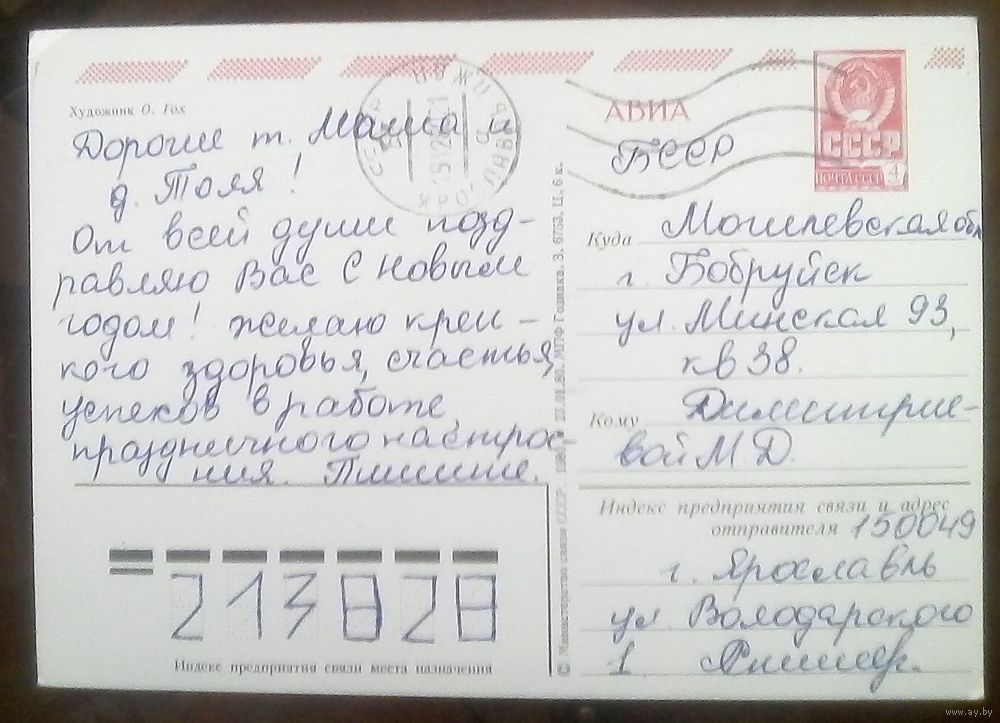 Художник О. Гох
Дорогие т. Майса и
д. Толя!
От всей души позд-
равляю Вас с Новым
годом! желаю креп-
кого здоровья, счастья,
успехов в работе
праздничного настрое-
ния. Пишите.
АВИА
БССР
СССР
ПОЧТА СССР 4
Куда Могилевская обл
г. Бобруйск
ул. Минская 93,
кв 38.
Кому Димитрие-
вой М. Д.
Индекс предприятия связи и адрес
отправителя 150049
г. Ярославль
ул Володарского
1
213828
Индекс предприятия связи места назначения
© Министерство связи СССР. 23.01.80. МПФ Гознака. З. 6753. Ц. 6 к.
www.ay.by